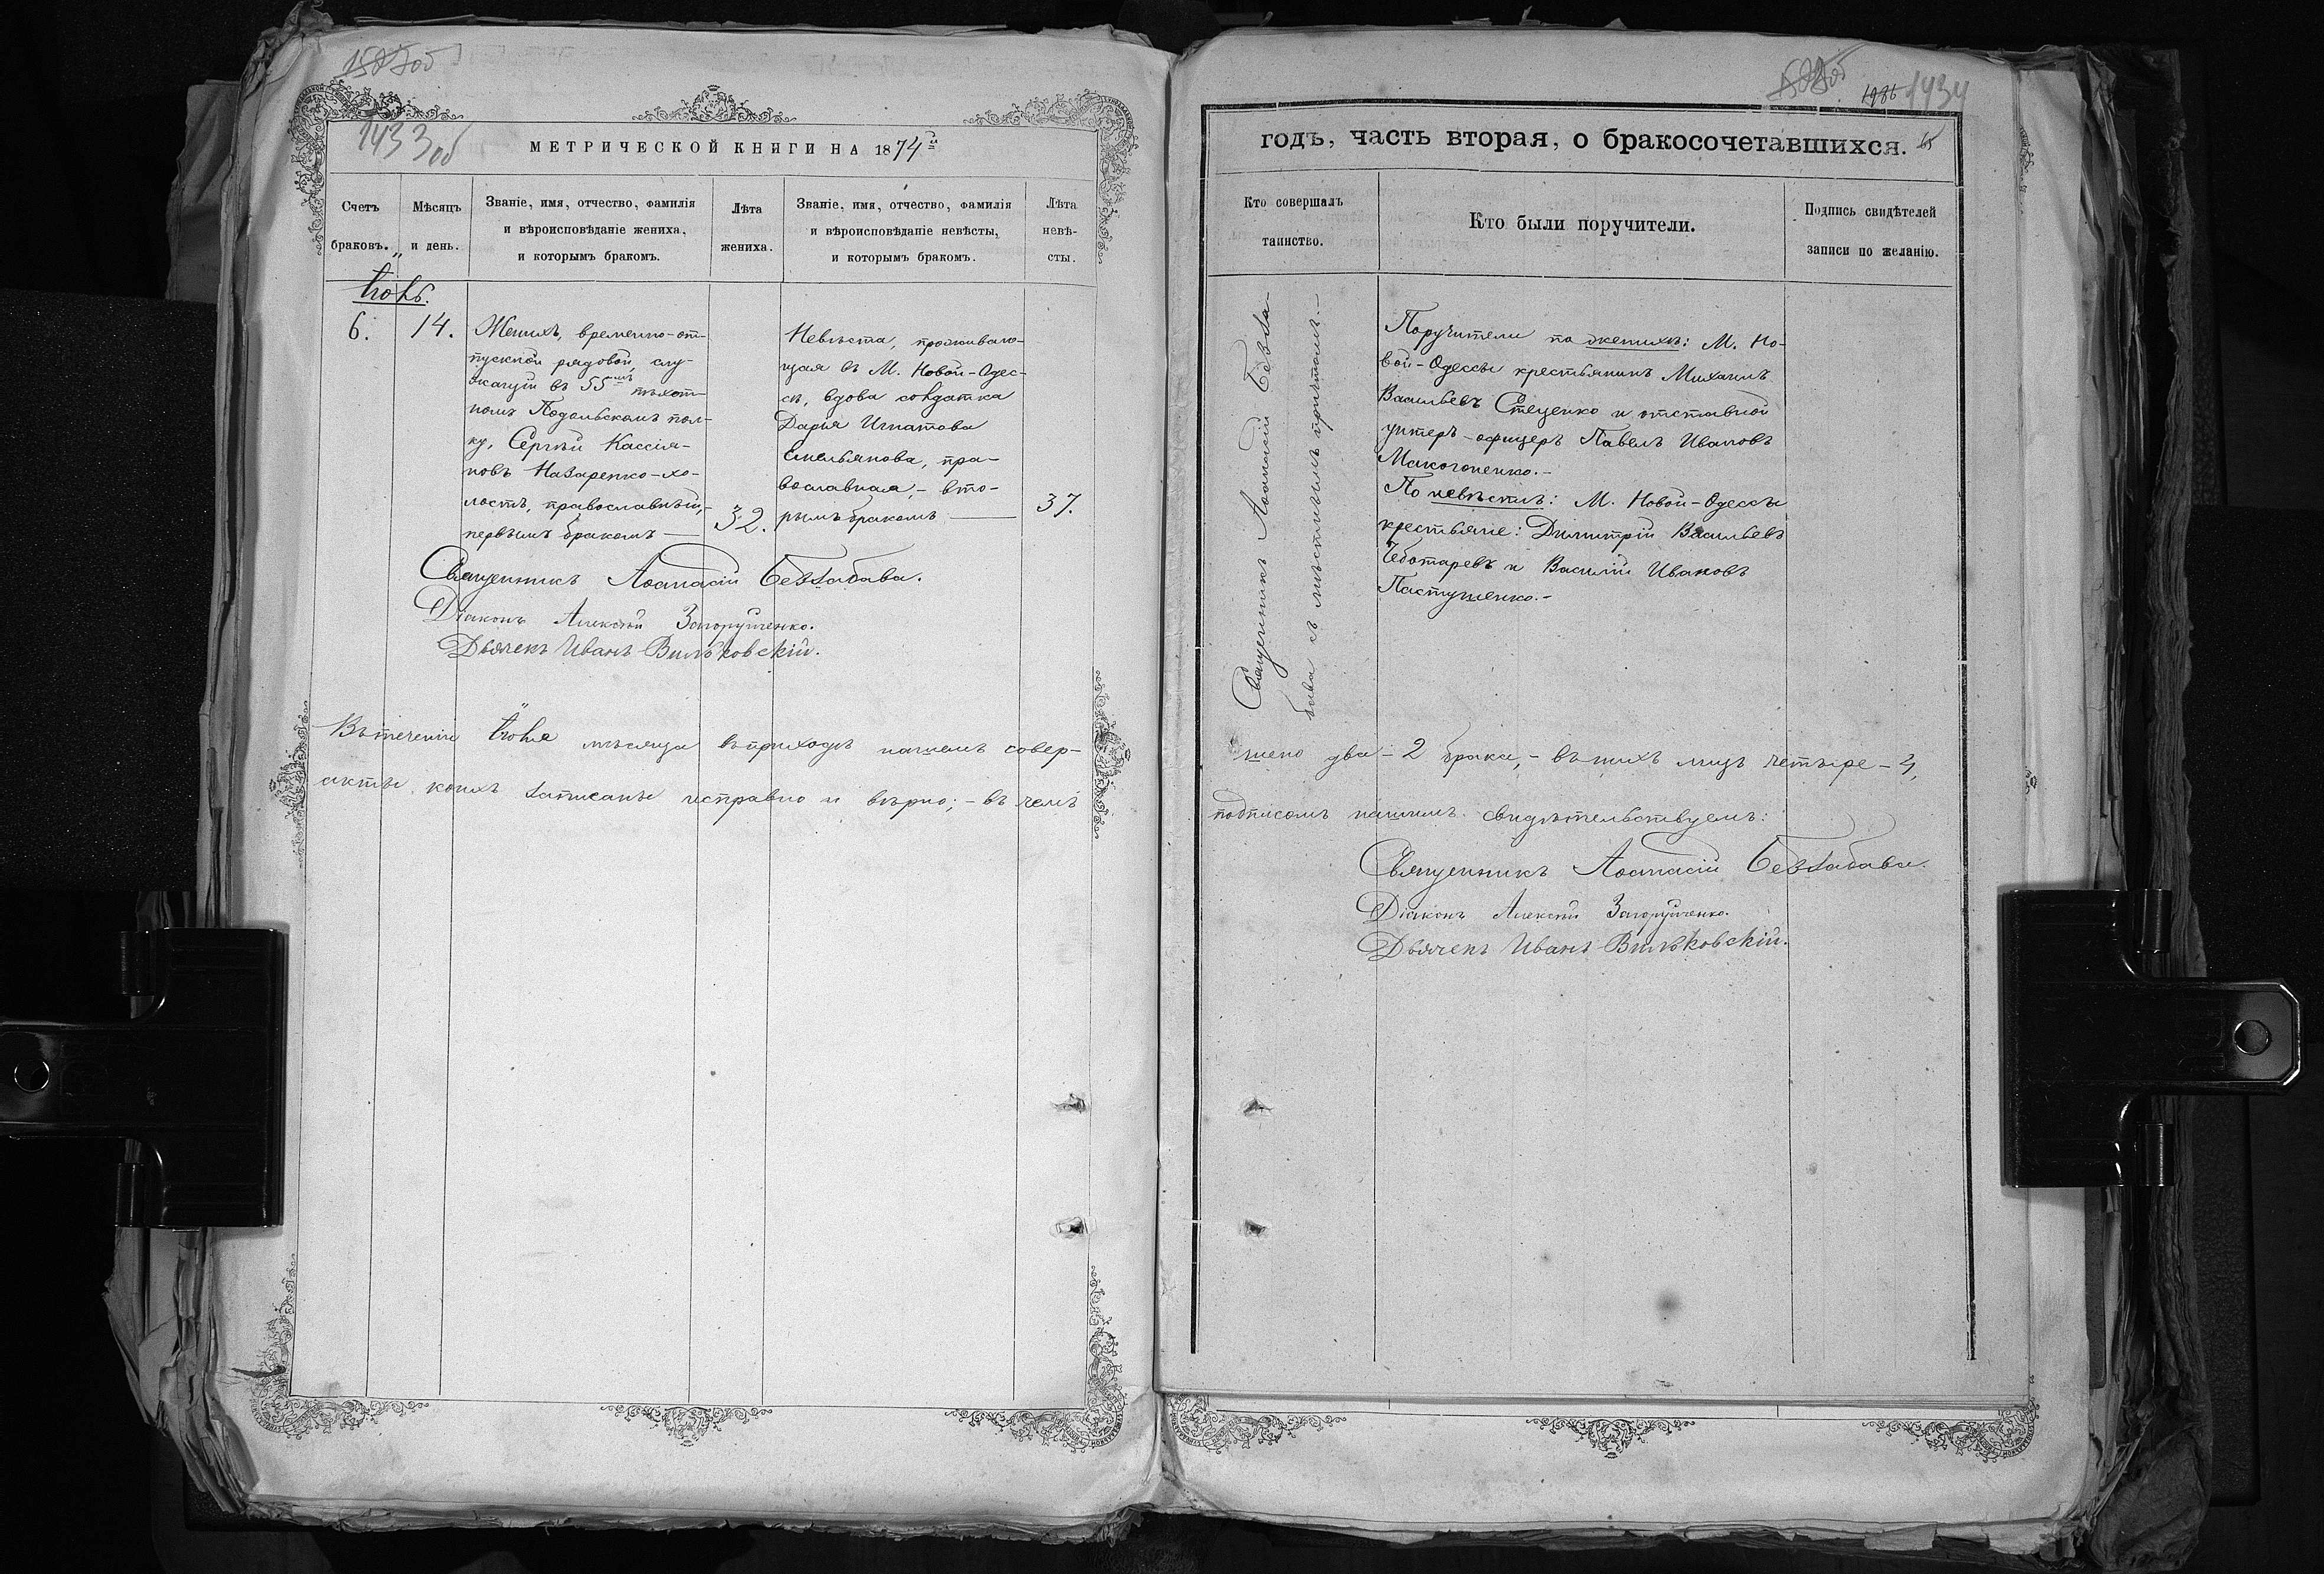 1433об
МЕТРИЧЕСКОЙ КНИГИ НА 1874й
Счетъ браковъ.
Мѣсяцъ и день.
Званіе, имя, отчество, фамилія и вѣроисповѣданіе жениха, и которымъ бракомъ.
Лѣта жениха.
Званіе, имя, отчество, фамилія и вѣроисповѣданіе невѣсты, и которымъ бракомъ.
Лѣта невѣ- сты.
Іюнь.
6. 14.
Женихъ, временно-от-
пускной рядовой, слу-
жащій въ 55мъ пѣхот-
номъ Подольскомъ пол-
ку, Сергѣй Кассіа-
новъ Назаренко-хо-
лостъ, православный,
первымъ бракомъ —
32.
Невѣста, проживаю-
щая въ М. Новой-Одес-
сѣ, вдова солдатка
Дарья Игнатова
Емельянова, пра-
вославная, - вто-
рымъ бракомъ —
37.
Священникъ Аѳанасій Беззабава.
Діаконъ Алексѣй Загоруйченко.
Дьячекъ Иванъ Вильковскій.
Въ теченіи Іюня мѣсяца въ приходѣ нашемъ совер-
акты коихъ записаны исправно и вѣрно; - въ чемъ
1434
годъ, часть вторая, о бракосочетавшихся.
65
Кто совершалъ таинство.
Кто были поручители.
Подпись свидѣтелей записи по желанію.
Священникъ Аѳанасій Безза-
бава съ мѣстнымъ причтомъ. -
Поручители по женихѣ: М. Но-
вой-Одессы крестьянинъ Михаилъ
Васильевъ Стеценко и отставной
унтеръ-офицеръ Павелъ Ивановъ
Макогоненко. -
По невѣстѣ: М. Новой-Одессы
крестьяне: Димитрій Васильевъ
Чеботаревъ и Василій Ивановъ
Пастушенко. -
шено два - 2 брака, - въ нихъ лицъ четыре - 4,
подписомъ нашимъ свидѣтельствуемъ:
Священникъ Аѳанасій Беззабава.
Діаконъ Алексѣй Загоруйченко.
Дьячекъ Иванъ Вильковскій.